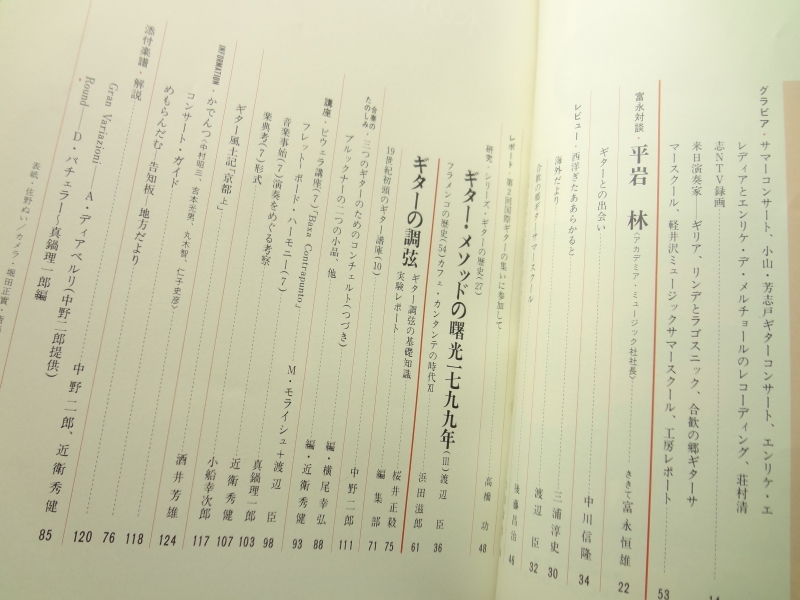 グラビア・サマーコンサート、小山・芳志戸ギターコンサート、エンリケ・エ
レディアとエンリケ・デ・メルチョールのレコーディング、荘村清
志NTV録画
来日演奏家 ギリア、リンデとラゴスニック、合歓の郷ギターサ
マースクール、軽井沢ミュージックサマースクール、工房レポート 53
富永対談・平岩 林(アカデミア・ミュージック社社長) ききて富永恒雄 22
ギターとの出会い 中川信隆 34
レビュー・西洋ぎたああらかると 三浦淳史 30
海外だより 渡辺 臣 32
合歓の郷ギターサマースクール
レポート・第2回国際ギターの集いに参加して 後藤昌治 46
研究・シリーズ・ギターの歴史(27) 高橋 功 48
ギター・メソッドの曙光一七九九年(Ⅲ) 渡辺 臣 36
フラメンコの歴史(54)カフェ・カンタンテの時代Ⅺ 浜田滋郎 61
ギターの調弦 ギター調弦の基礎知識
実験レポート 編集部 71
19世紀初頭のギター講庫(10) 桜井正毅 75
合奏のたのしみ・三つのギターのためのコンチェルト(つづき) 中野二郎 111
ブルックナーの二つの小品、他
講座・ビウェラ講座(7)"Baxa Contrapunto" 編・横尾幸弘 88
フレットボード・ハーモニー(7) 編・近衛秀健 93
音楽事始(7)演奏をめぐる考察 M・モライシュ+渡辺 臣 98
楽典考(7)形式 真鍋理一郎 103
ギター風土記「京都 上」 近衛秀健 107
INFORMATION・かでんつ(中村昭三、吉本光男、丸木智、仁子史彦) 小船幸次郎 117
コンサート・ガイド 酒井芳雄 124
めもらんだむ 告知板 地方だより 118
添付楽譜・解説 76
Gran Variazioni A・ディアベルリ(中野二郎提供) 中野二郎、近衛秀健 120
Round D・バチェラー〜真鍋理一郎編 85
表紙・佐野ぬい/カメラ・堀田正實・